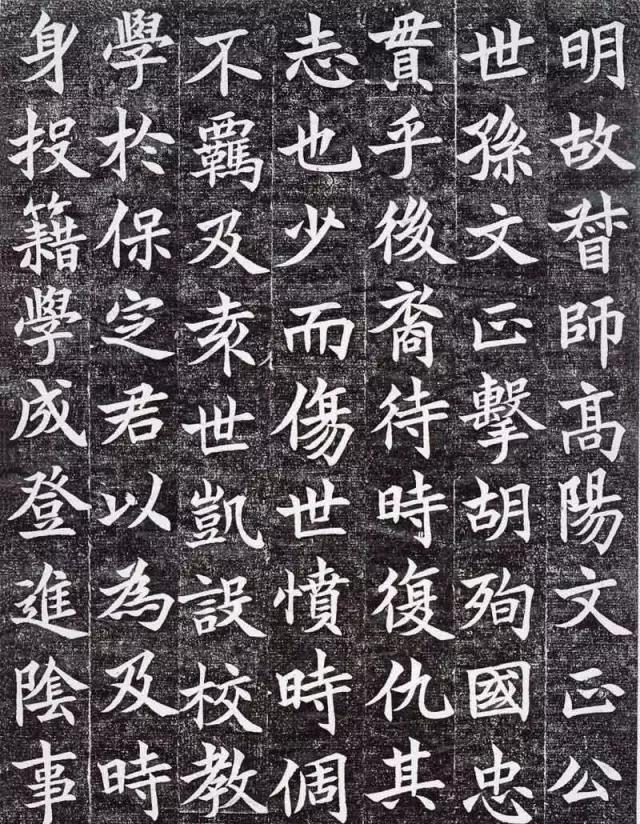 明故督師高陽文正公
世孫文正擊胡殉國忠
貫乎後裔待時復仇其
志也少而傷世憤時倜
不羈及袁世凱設校教
學於保定君以為及時
身投籍學成登進陰事